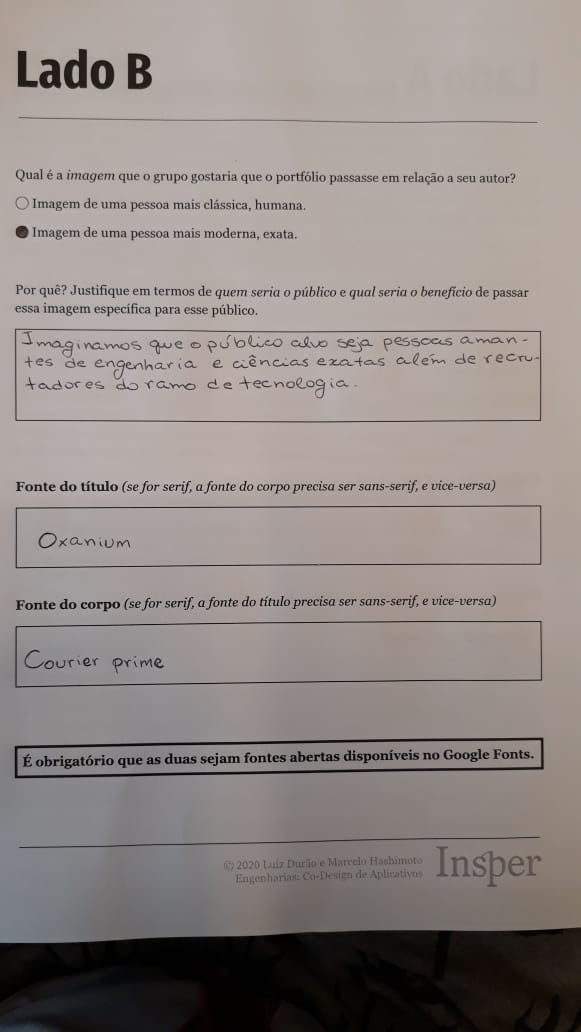 Lado B
Qual é a imagem que o grupo gostaria que o portfólio passasse em relação a seu autor?
Imagem de uma pessoa mais clássica, humana.
Imagem de uma pessoa mais moderna, exata.
Por quê? Justifique em termos de quem seria o público e qual seria o benefício de passar
essa imagem específica para esse público.
Imaginamos que o público alvo seja pessoas aman-
tes de engenharia e ciências exatas além de recru-
tadores do ramo de tecnologia.
Fonte do título (se for serif, a fonte do corpo precisa ser sans-serif, e vice-versa)
Oxanium
Fonte do corpo (se for serif, a fonte do título precisa ser sans-serif, e vice-versa)
Courier prime
É obrigatório que as duas sejam fontes abertas disponíveis no Google Fonts.
© 2020 Luiz Durão e Marcelo Hashimoto
Engenharias: Co-Design de Aplicativos
Insper